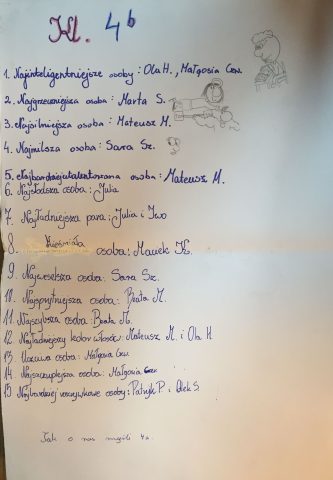 Kl. 4b
1. Najinteligentniejsze osoby: Ola H., Małgosia Czw.
2. Najgrzeczniejsza osoba: Marta S.
3. Najsilniejsza osoba: Mateusz M.
4. Najmilsza osoba: Sara Sz.
5. Najbardziej utalentowana osoba: Mateusz M.
6. Najsłodsza osoba: Julia
7. Najładniejsza para: Julia i Iwo
8. osoba: Macek K.
9. Najweselsza osoba: Sara Sz.
10. Najsprytniejsza osoba: Beata M.
11. Najszybsza osoba: Beata M.
12. Najładniejszy kolor włosów: Mateusz M. i Ola H.
13. Uczciwa osoba: Małgosia Czw.
14. Najszczuplejsza osoba: Małgosia Czw.
15. Najbardziej rozrywkowe osoby: Patryk P. i Olek S.
Tak o nas myśli 4a.